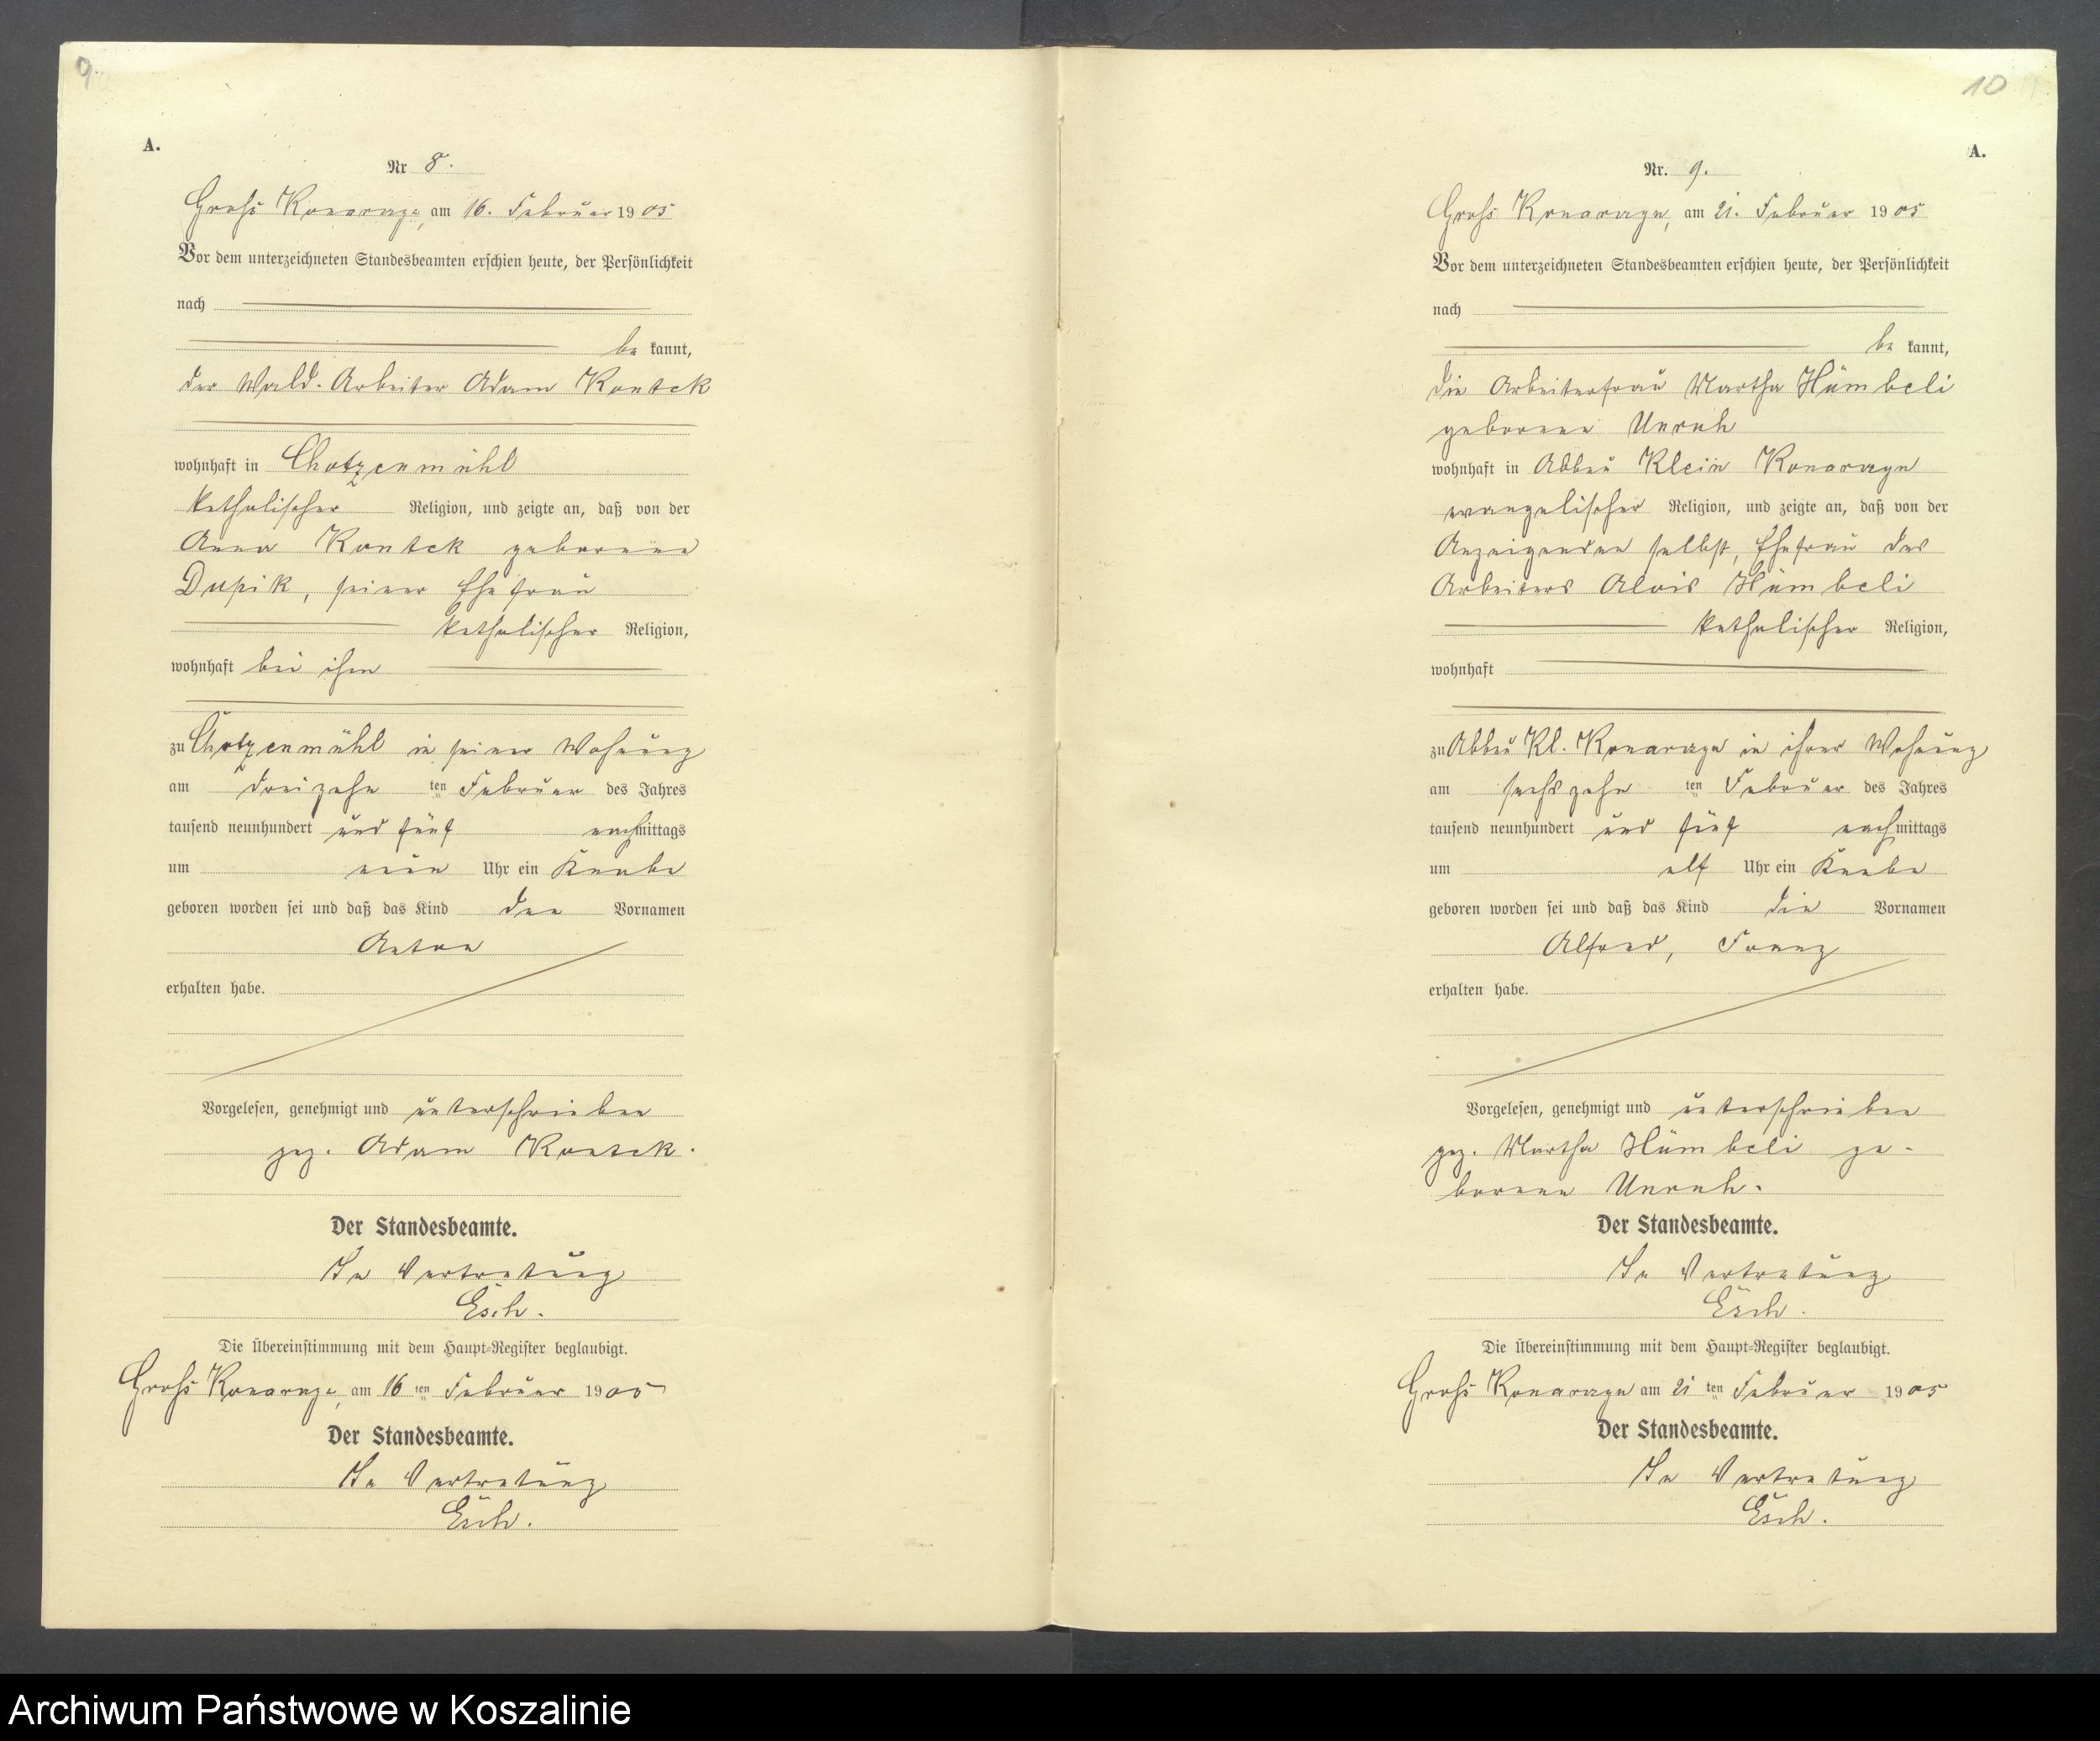 9
A.
Nr 8.
Groß Konarzyn, am 16. Februar 1905
Vor dem unterzeichneten Standesbeamten erschien heute, der Persönlichkeit
nach
be kannt,
der Wald-Arbeiter Adam Kontek
wohnhaft in Chotzenmühl
katholischer Religion, und zeigte an, daß von der
Anna Kontek geborene
Dupik, seiner Ehefrau
katholischer Religion,
wohnhaft bei ihm
zu Chotzenmühl in seiner Wohnung
am dreizehn ten Februar des Jahres
tausend neunhundert und fünf nachmittags
um neun Uhr ein Knabe
geboren worden sei und daß das Kind den Vornamen
Anton
erhalten habe.
Vorgelesen, genehmigt und unterschrieben
gez. Adam Kontek.
Der Standesbeamte.
In Vertretung
Esch.
Die Übereinstimmung mit dem Haupt-Register beglaubigt.
Groß Konarzyn, am 16 ten Februar 1905
Der Standesbeamte.
In Vertretung
Esch.
10
A.
Nr. 9.
Groß Konarzyn, am 21. Februar 1905
Vor dem unterzeichneten Standesbeamten erschien heute, der Persönlichkeit
nach
be kannt,
die Arbeiterfrau Martha Hümbeli
geborene Unruh
wohnhaft in Abbau Klein Konarzyn
evangelischer Religion, und zeigte an, daß von der
Anzeigenden selbst, Ehefrau des
Arbeiters Alois Hümbeli
katholischer Religion,
wohnhaft
zu Abbau Kl. Konarzyn in ihrer Wohnung
am sechszehn ten Februar des Jahres
tausend neunhundert und fünf nachmittags
um elf Uhr ein Knabe
geboren worden sei und daß das Kind die Vornamen
Alfred, Franz
erhalten habe.
Vorgelesen, genehmigt und unterschrieben
gez. Martha Hümbeli ge-
borene Unruh.
Der Standesbeamte.
In Vertretung
Esch.
Die Übereinstimmung mit dem Haupt-Register beglaubigt.
Groß Konarzyn am 21 ten Februar 1905
Der Standesbeamte.
In Vertretung
Esch.
Archiwum Państwowe w Koszalinie